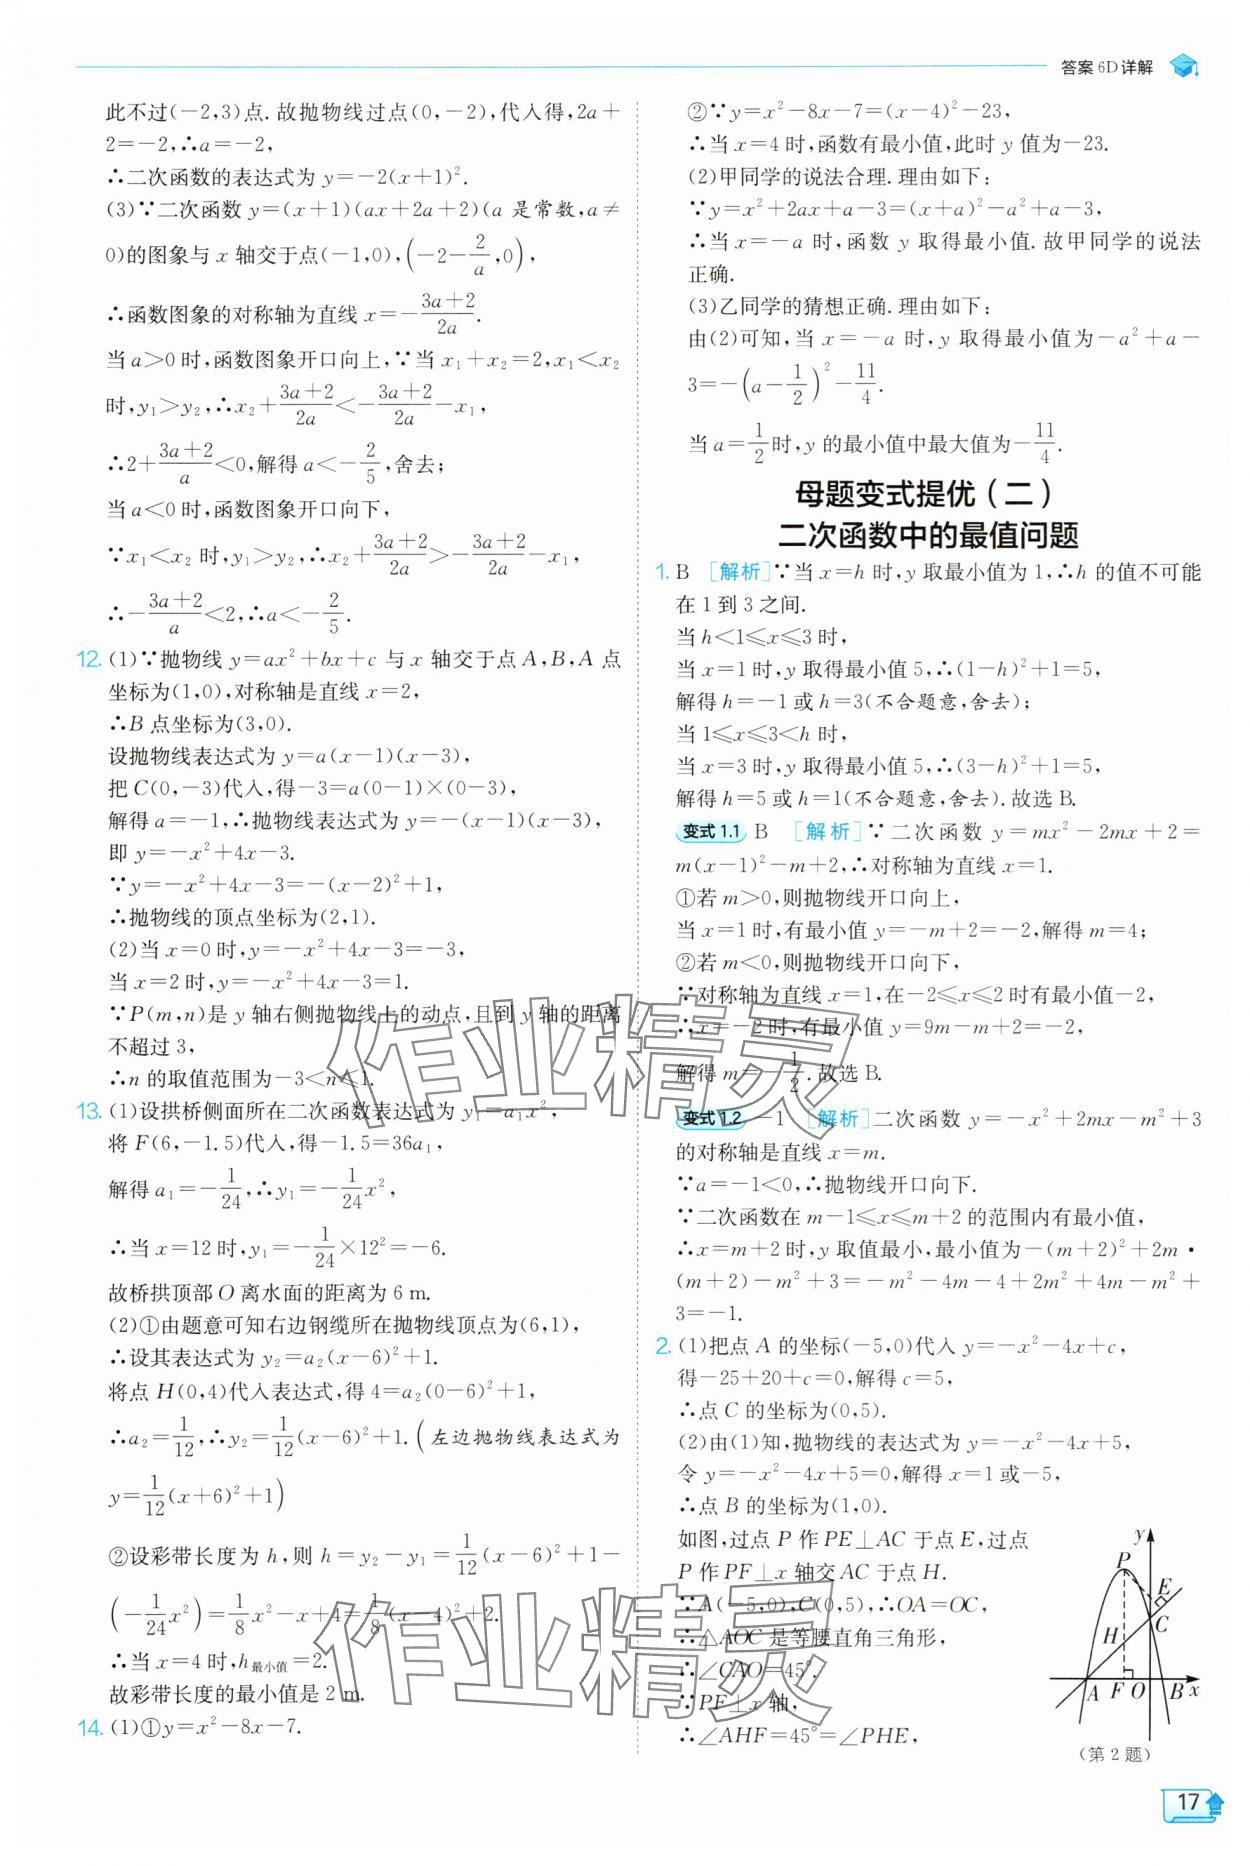 答案 6D 详解
此不过(-2,3)点. 故抛物线过点(0,-2),代入得,2a+
2=-2,∴a=-2,
∴二次函数的表达式为 y=-2(x+1)².
(3)∵二次函数 y=(x+1)(ax+2a+2)(a 是常数,a≠
0)的图象与 x 轴交于点(-1,0),(-2-2/a,0),
∴函数图象的对称轴为直线 x=-(3a+2)/(2a).
当 a>0 时,函数图象开口向上,∵当 x₁+x₂=2,x₁<x₂
时,y₁>y₂,∴x₂+(3a+2)/(2a)<-(3a+2)/(2a)-x₁,
∴2+(3a+2)/a<0,解得 a<-2/5,舍去;
当 a<0 时,函数图象开口向下,
∵x₁<x₂ 时,y₁>y₂,∴x₂+(3a+2)/(2a)>-(3a+2)/(2a)-x₁,
∴-(3a+2)/a<2,∴a<-2/5.
12. (1)∵抛物线 y=ax²+bx+c 与 x 轴交于点 A,B,A 点
坐标为(1,0),对称轴是直线 x=2,
∴B 点坐标为(3,0).
设抛物线表达式为 y=a(x-1)(x-3),
把 C(0,-3)代入,得-3=a(0-1)×(0-3),
解得 a=-1,∴抛物线表达式为 y=-(x-1)(x-3),
即 y=-x²+4x-3.
∵y=-x²+4x-3=-(x-2)²+1,
∴抛物线的顶点坐标为(2,1).
(2)当 x=0 时,y=-x²+4x-3=-3,
当 x=2 时,y=-x²+4x-3=1.
∵P(m,n)是 y 轴右侧抛物线上的动点,且到 y 轴的距离
不超过 3,
∴n 的取值范围为-3<n≤1.
13. (1)设拱桥侧面所在二次函数表达式为 y₁=a₁x²,
将 F(6,-1.5)代入,得-1.5=36a₁,
解得 a₁=-1/24,∴y₁=-1/24x²,
∴当 x=12 时,y₁=-1/24×12²=-6.
故桥拱顶部 O 离水面的距离为 6 m.
(2)①由题意可知右边钢缆所在抛物线顶点为(6,1),
∴设其表达式为 y₂=a₂(x-6)²+1.
将点 H(0,4)代入表达式,得 4=a₂(0-6)²+1,
∴a₂=1/12,∴y₂=1/12(x-6)²+1.(左边抛物线表达式为
y=1/12(x+6)²+1)
②设彩带长度为 h,则 h=y₂-y₁=1/12(x-6)²+1-
(-1/24x²)=1/8x²-x+4=1/8(x-4)²+2.
∴当 x=4 时,h最小值=2.
故彩带长度的最小值是 2 m.
14. (1)①y=x²-8x-7.
②∵y=x²-8x-7=(x-4)²-23,
∴当 x=4 时,函数有最小值,此时 y 值为-23.
(2)甲同学的说法合理. 理由如下:
∵y=x²+2ax+a-3=(x+a)²-a²+a-3,
∴当 x=-a 时,函数 y 取得最小值. 故甲同学的说法
正确.
(3)乙同学的猜想正确. 理由如下:
由(2)可知,当 x=-a 时,y 取得最小值为-a²+a-
3=-(a-1/2)²-11/4.
当 a=1/2时,y 的最小值中最大值为-11/4.
母题变式提优(二)
二次函数中的最值问题
1. B [解析]∵当 x=h 时,y 取最小值为 1,∴h 的值不可能
在 1 到 3 之间.
当 h<1≤x≤3 时,
当 x=1 时,y 取得最小值 5,∴(1-h)²+1=5,
解得 h=-1 或 h=3(不合题意,舍去);
当 1≤x≤3<h 时,
当 x=3 时,y 取得最小值 5,∴(3-h)²+1=5,
解得 h=5 或 h=1(不合题意,舍去).故选 B.
变式 1.1 B [解析]∵二次函数 y=mx²-2mx+2=
m(x-1)²-m+2,∴对称轴为直线 x=1.
①若 m>0,则抛物线开口向上,
当 x=1 时,有最小值 y=-m+2=-2,解得 m=4;
②若 m<0,则抛物线开口向下,
∵对称轴为直线 x=1,在-2≤x≤2 时有最小值-2,
∴x=-2 时,有最小值 y=9m-m+2=-2,
解得 m=-1/2.故选 B.
变式 1.2 -1 [解析]二次函数 y=-x²+2mx-m²+3
的对称轴是直线 x=m.
∵a=-1<0,∴抛物线开口向下.
∵二次函数在 m-1≤x≤m+2 的范围内有最小值,
∴x=m+2 时,y 取值最小,最小值为-(m+2)²+2m·
(m+2)-m²+3=-m²-4m-4+2m²+4m-m²+
3=-1.
2. (1)把点 A 的坐标(-5,0)代入 y=-x²-4x+c,
得-25+20+c=0,解得 c=5,
∴点 C 的坐标为(0,5).
(2)由(1)知,抛物线的表达式为 y=-x²-4x+5,
令 y=-x²-4x+5=0,解得 x=1 或-5,
∴点 B 的坐标为(1,0).
如图,过点 P 作 PE⊥AC 于点 E,过点
P 作 PF⊥x 轴交 AC 于点 H.
∵A(-5,0),C(0,5),∴OA=OC,
∴△AOC 是等腰直角三角形,
∴∠CAO=45°.
∵PF⊥x 轴,
∴∠AHF=45°=∠PHE,
y
P
E
C
H
A F O B x
(第 2 题)
作业精灵
作业精灵
17